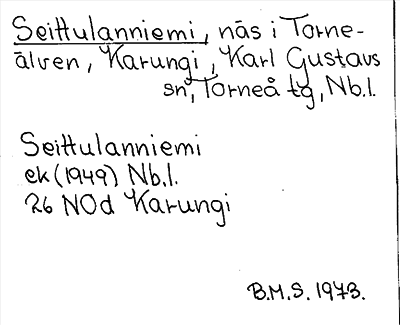 Seittulanniemi, näs i Torne-
älven, Karungi, Karl Gustavs
sn, Torneå tg, Nb.l.
Seittulanniemi
ek (1949) Nb.l.
26 NOd Karungi
B.M.S. 1973.